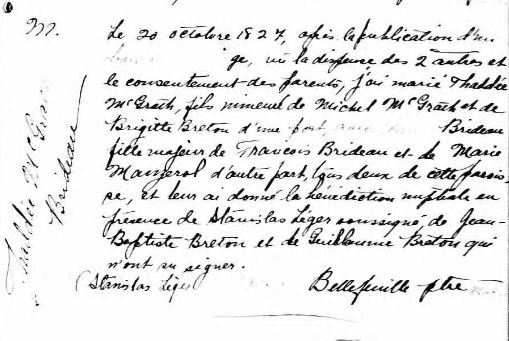 M.
Le 20 octobre 1827, après la publication d'un
ge, vu la dispense des 2 autres et
le consentement des parents, j'ai marié Thaddée
McGrath, fils mineur de Michel McGrath et de
Brigitte Breton d'une part, avec Brideau
fille majeur de Francois Brideau et de Marie
Mazerol d'autre part, tous deux de cette parois-
se, et leur ai donné la bénédiction nuptiale en
présence de Stanislas Léger soussigné, de Jean-
Baptiste Breton et de Guillaume Breton qui
n'ont su signer.
(Stanislas Léger
Bellefeuille ptre
Thaddée McGrath
Brideau